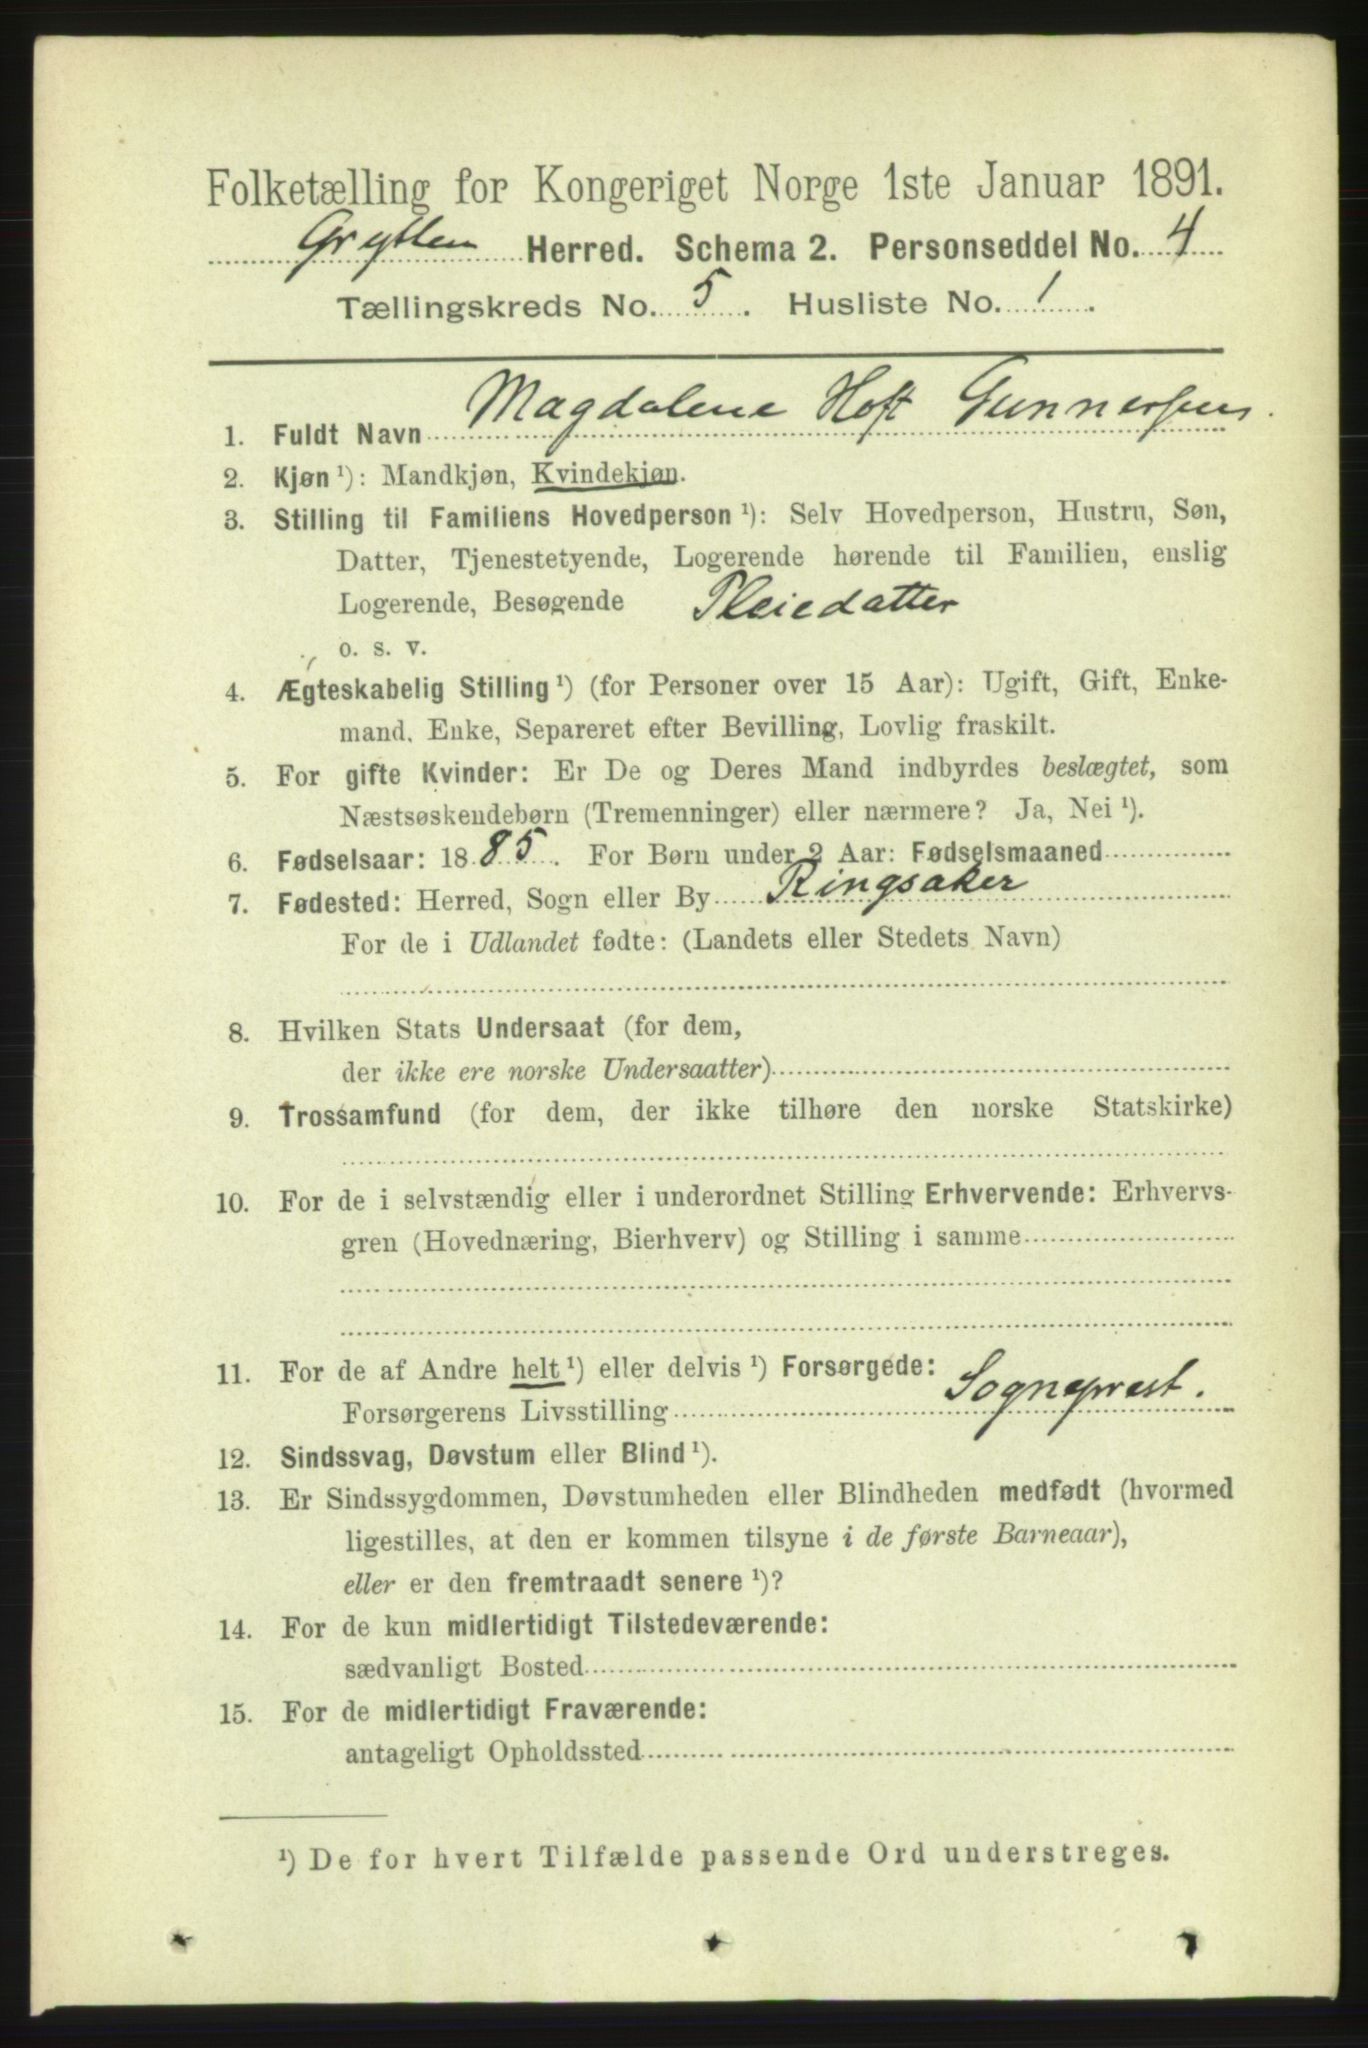 Folketælling for Kongeriget Norge 1ste Januar 1891.
Grytten Herred. Schema 2. Personseddel No. 4
Tællingskreds No. 5. Husliste No. 1.
1. Fuldt Navn Magdalene Hoft Gunnersen.
2. Kjøn ¹): Mandkjøn, Kvindekjøn.
3. Stilling til Familiens Hovedperson ¹): Selv Hovedperson, Hustru, Søn,
Datter, Tjenestetyende, Logerende hørende til Familien, enslig
Logerende, Besøgende Pleiedatter
o. s. v.
4. Ægteskabelig Stilling ¹) (for Personer over 15 Aar): Ugift, Gift, Enke-
mand, Enke, Separeret efter Bevilling, Lovlig fraskilt.
5. For gifte Kvinder: Er De og Deres Mand indbyrdes beslægtet, som
Næstsøskendebørn (Tremenninger) eller nærmere? Ja, Nei ¹).
6. Fødselsaar: 1885. For Børn under 2 Aar: Fødselsmaaned
7. Fødested: Herred, Sogn eller By Ringsaker
For de i Udlandet fødte: (Landets eller Stedets Navn)
8. Hvilken Stats Undersaat (for dem,
der ikke ere norske Undersaatter)
9. Trossamfund (for dem, der ikke tilhøre den norske Statskirke)
10. For de i selvstændig eller i underordnet Stilling Erhvervende: Erhvervs-
gren (Hovednæring, Bierhverv) og Stilling i samme
11. For de af Andre helt ¹) eller delvis ¹) Forsørgede:
Forsørgerens Livsstilling Sogneprest.
12. Sindssvag, Døvstum eller Blind ¹).
13. Er Sindssygdommen, Døvstumheden eller Blindheden medfødt (hvormed
ligestilles, at den er kommen tilsyne i de første Barneaar),
eller er den fremtraadt senere ¹)?
14. For de kun midlertidigt Tilstedeværende:
sædvanligt Bosted
15. For de midlertidigt Fraværende:
antageligt Opholdssted
¹) De for hvert Tilfælde passende Ord understreges.